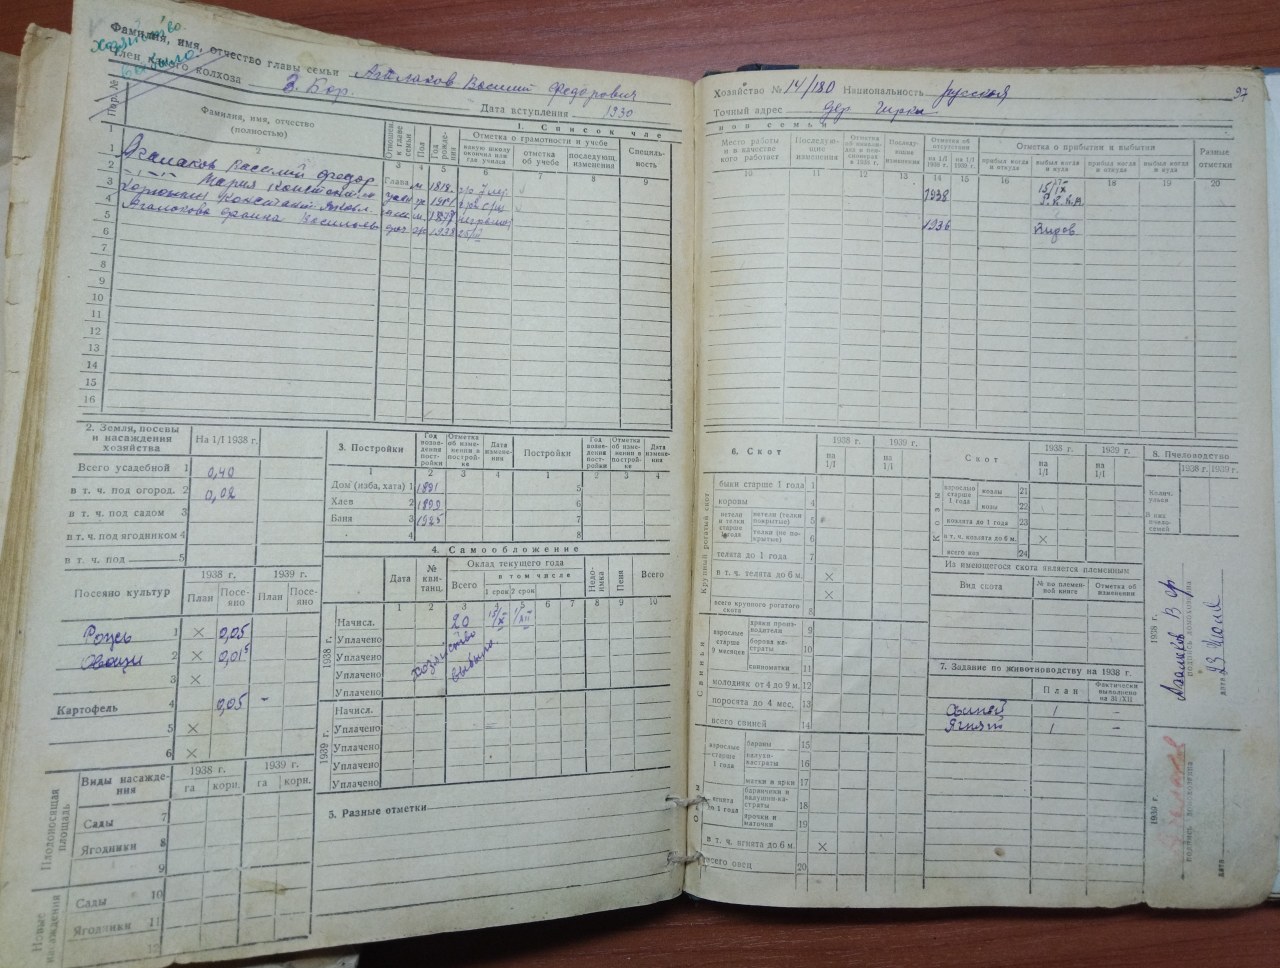 хозяйство
выбыло
Фамилия, имя, отчество главы семьи Агалаков Василий Федорович
Член какого колхоза З. Бор.
Дата вступления 1930
1. Список чле
Фамилия, имя, отчество
(полностью)
Пол
Год рождения
Отметка о грамотности и учебе
отметка об учебе
последующ. изменения
Специальность
1 2 3 4 5 6 7 8 9
Агалаков Василий Федор. Глава м
Мария
Агалакова Васильевна
1 2 3 4 5 6 7 8 9 10 11 12 13 14 15 16
2. Земли, посевы и насаждения хозяйства
На 1/I 1938 г.
Всего усадебной 1 0,40
в т. ч. под огород. 2 0,02
в т. ч. под садом 3
в т.ч. под ягодником 4
в т. ч. под 5
Посеяно культур
1938 г. 1939 г.
План Посеяно План Посеяно
Рожь 1 × 0,05
Овощи 2 × 0,01⁵
3 ×
Картофель 4 0,05 –
5 ×
6 ×
Плодоносящая площадь
Виды насаждения
1938 г. 1939 г.
га корн. га корн.
Сады 7
Ягодники 8
9
Новые насаждения
Сады 10
Ягодники 11
12
3. Постройки
Год возведения постройки
Отметка об изменении в постройке
Дата изменения
Постройки
1 2 3 4 1 2 3 4
Дом (изба, хата) 1 1891 5
Хлев 2 1899 6
Баня 3 1925 7
4 8
4. Самообложение
Дата
№ квитанц.
Оклад текущего года
Всего
в том числе
1 срок 2 срок
Недоимка
Пеня
Всего
1 2 3 4 5 6 7 8 9 10
1938 г.
Начисл. 20 15/X 1/XII
Уплачено
Уплачено
Уплачено
Уплачено
хозяйство
выбыло
1939 г.
Начисл.
Уплачено
Уплачено
Уплачено
Уплачено
5. Разные отметки
Хозяйство № 14/180 Национальность русская
97
Точный адрес дер
нов семьи
Место работы и в качестве кого работает
Последующ. изменения
Последующие изменения
Отметка об отсутствии
на 1/I 1938 г. на 1/I 1939 г.
Отметка о прибытии и выбытии
прибыл когда и откуда
выбыл когда и куда
прибыл когда и откуда
выбыл когда и куда
Разные отметки
10 11 12 13 14 15 16 17 18 19 20
1938
Р.К.К.А.
1936 Киров
6. Скот
1938 г. 1939 г.
на 1/I на 1/I
Крупный рогатый скот
быки старше 1 года 1
коровы 4
5
6
телята до 1 года 7
в т. ч. телята до 6 м. ×
всего крупного рогатого скота 8
Свиньи
взрослые старше 9 месяцев
хряки производители 9
борова кастраты 10
свиноматки 11
молодняк от 4 до 9 м. 12
поросята до 4 мес. 13
всего свиней 14
взрослые старше 1 года
бараны 15
валухи-кастраты 16
матки и ярки 17
ягнята до 1 года
баранчики и валушки-кастраты 18
ярочки и маточки 19
в т. ч. ягнята до 6 м. ×
всего овец 20
Скот
1938 г. 1939 г.
на 1/I на 1/I
Козы
взрослые старше 1 года
козлы 21
козы 22
козлята до 1 года 23
в т. ч. козлята до 6 м. ×
всего коз 24
Из имеющегося скота является племенным
Вид скота
№ по племенной книге
Отметка об изменении
7. Задание по животноводству на 1938 г.
План
Фактически выполнено на 31/XII
Свиней 1 –
Ягнят 1 –
8. Пчеловодство
1938 г. 1939 г.
1938 г.
Агалаков В Ф
дата 23 июля
1939 г.
дата